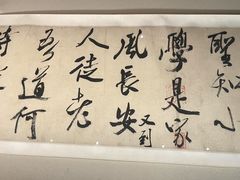 聖知心
學是家
風長安又到
人徒老
吾道何
時